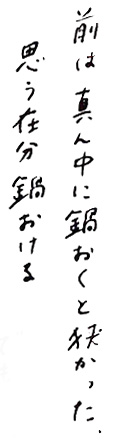 前は真ん中に鍋おくと狭かった、
思う在分鍋おける